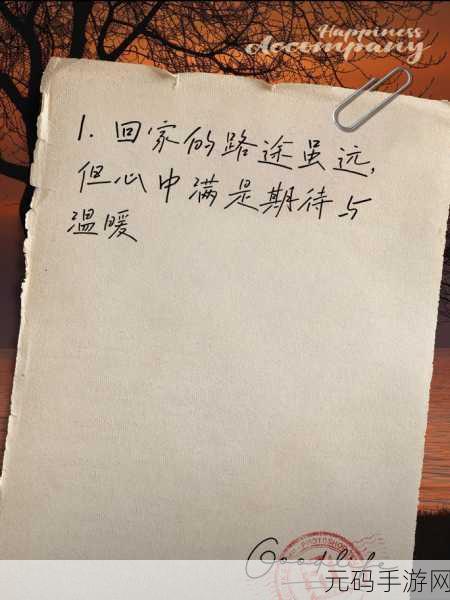 Happiness
Accompany
1. 回家的路途虽远,
但心中满是期待与
温暖
Good life
PHOTOSHOP
元码手游网